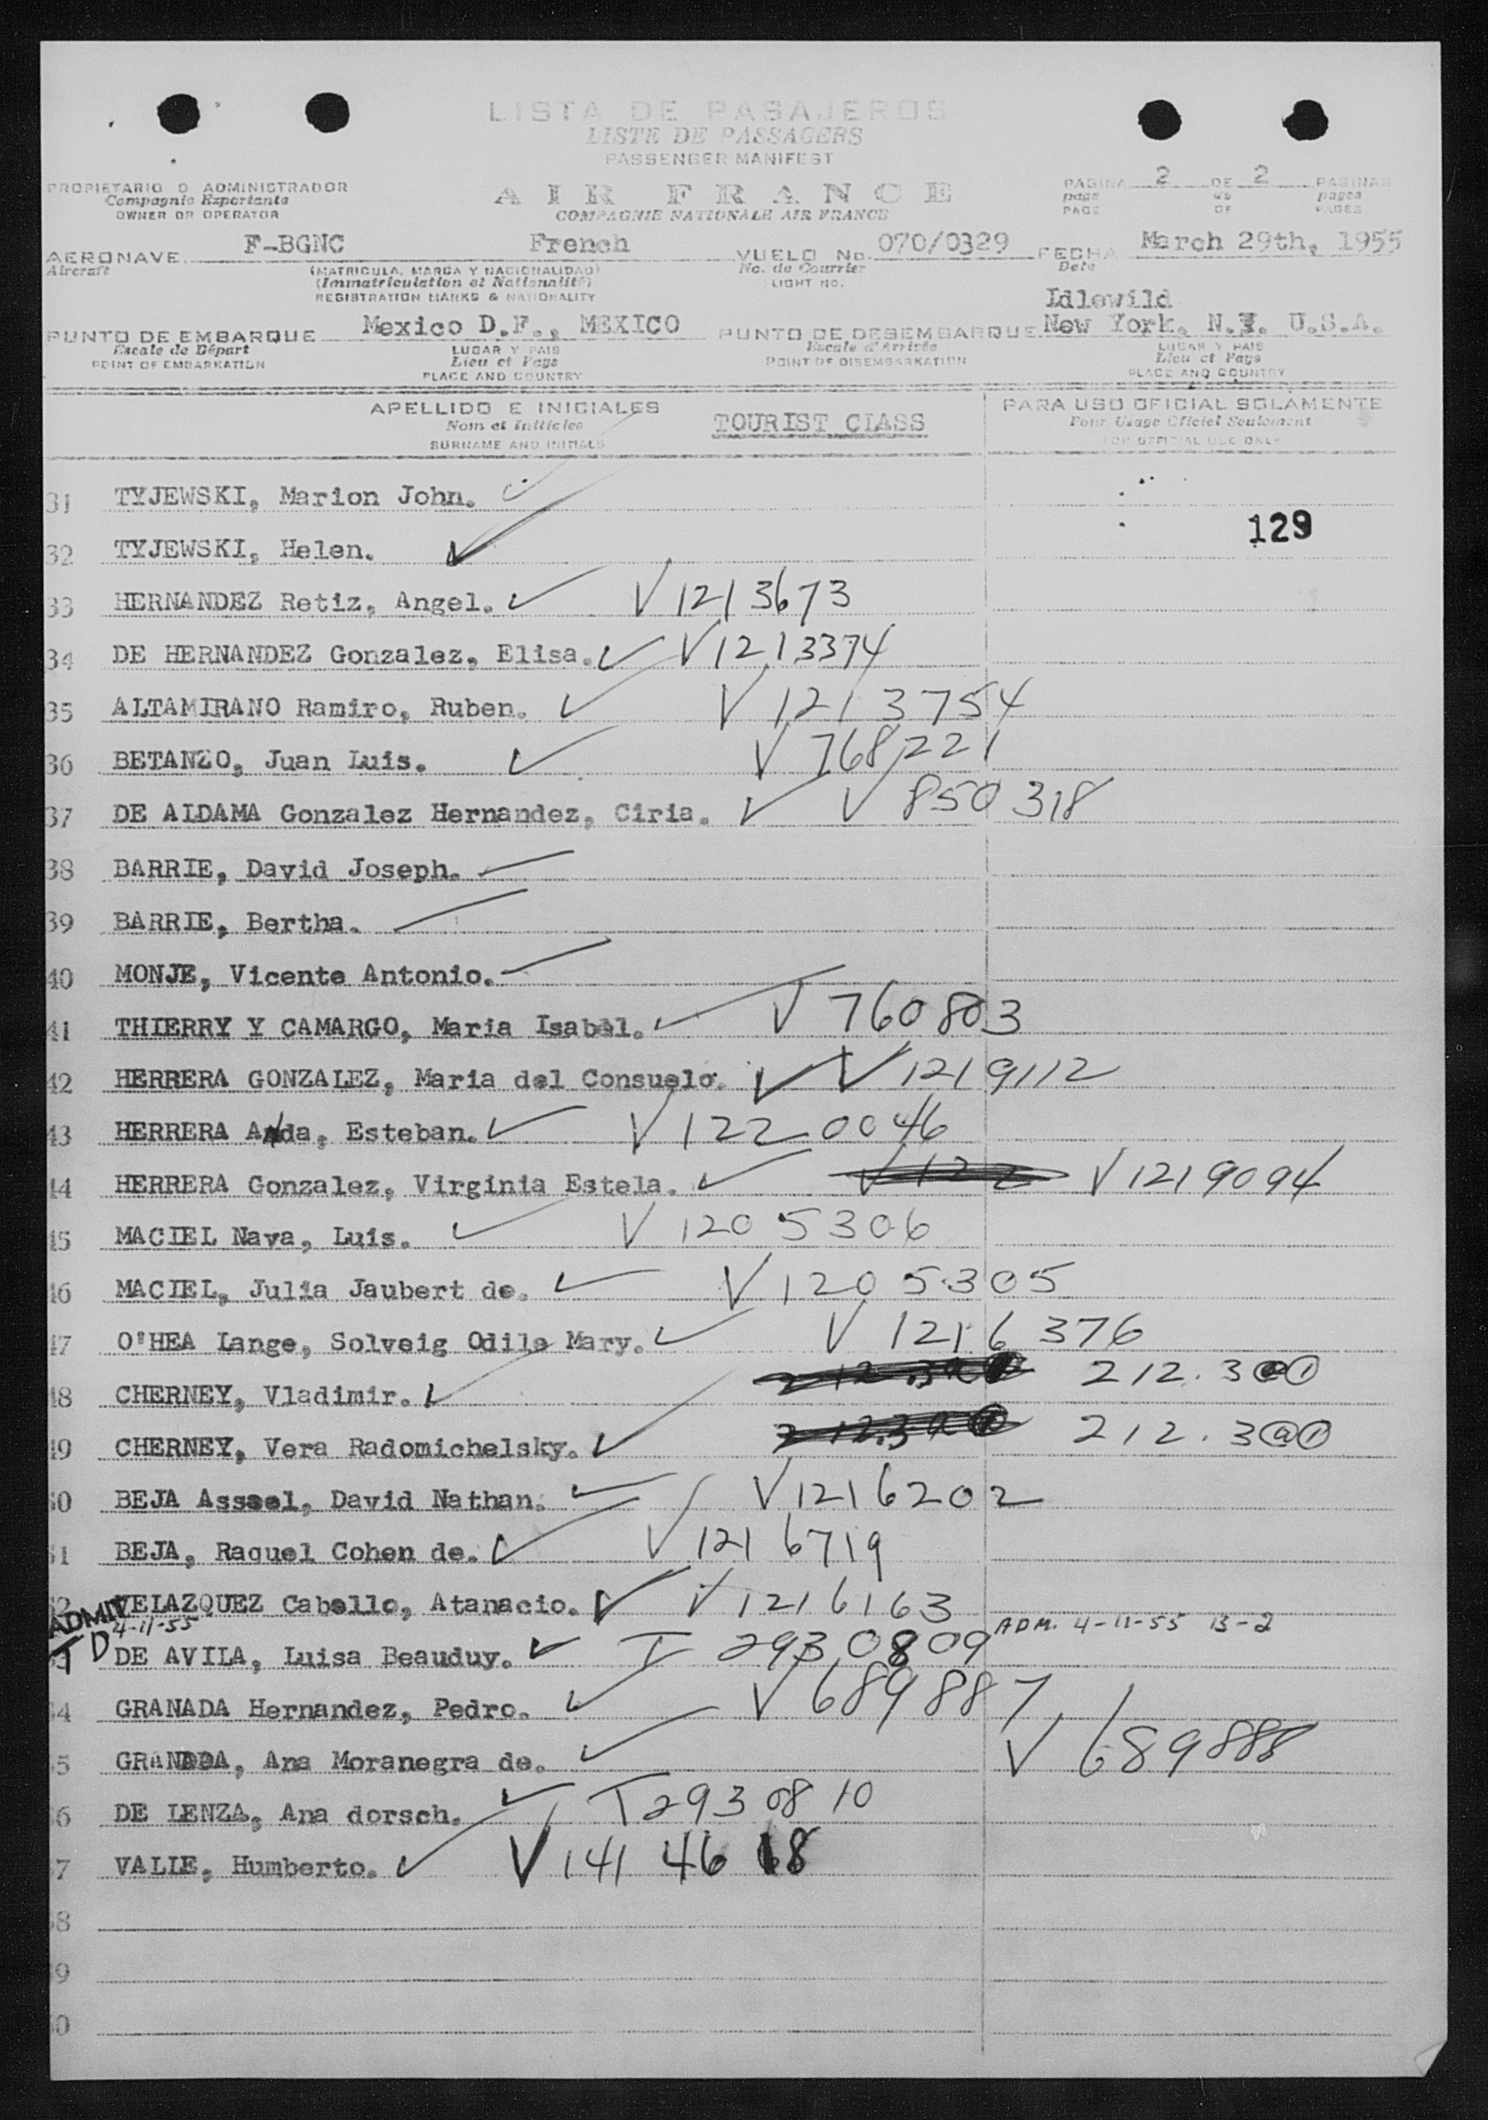 LISTA DE PASAJEROS
LISTE DE PASSAGERS
PASSENGER MANIFEST
PROPIETARIO O ADMINISTRADOR
Compagnie Exportante
OWNER OR OPERATOR
AIR FRANCE
COMPAGNIE NATIONALE AIR FRANCE
PAGINA 2 DE 2 PAGINAS
page de pages
PAGE OF PAGES
AERONAVE F-BGNC French VUELO No. 070/0329 FECHA March 29th, 1955
Aircraft (MATRICULA, MARCA Y NACIONALIDAD) No. de Courrier Date
(Immatriculation et Nationalité) LIGHT NO.
REGISTRATION MARKS & NATIONALITY
Idlewild
PUNTO DE EMBARQUE Mexico D.F., MEXICO PUNTO DE DESEMBARQUE New York, N.Y. U.S.A.
Escale de Départ LUGAR Y PAIS Escale d'Arrivée LUGAR Y PAIS
POINT OF EMBARKATION Lieu et Pays POINT OF DISEMBARKATION Lieu et Pays
PLACE AND COUNTRY PLACE AND COUNTRY
APELLIDO E INICIALES TOURIST CLASS PARA USO OFICIAL SOLAMENTE
Nom et Initiales Pour Usage Officiel Seulement
SURNAME AND INITIALS FOR OFFICIAL USE ONLY
31 TYJEWSKI, Marion John.
129
32 TYJEWSKI, Helen.
33 HERNANDEZ Retiz, Angel. V 1213673
34 DE HERNANDEZ Gonzalez, Elisa. V 1213374
35 ALTAMIRANO Ramiro, Ruben. V 1213754
36 BETANZO, Juan Luis. V 768221
37 DE ALDAMA Gonzalez Hernandez, Ciria. V 850318
38 BARRIE, David Joseph.
39 BARRIE, Bertha.
40 MONJE, Vicente Antonio.
41 THIERRY Y CAMARGO, Maria Isabel. V 760803
42 HERRERA GONZALEZ, Maria del Consuelo. V 1219112
43 HERRERA Anda, Esteban. V 1220046
44 HERRERA Gonzalez, Virginia Estela. V 122 V 1219094
45 MACIEL Nava, Luis. V 1205306
46 MACIEL, Julia Jaubert de. V 1205305
47 O'HEA Lange, Solveig Odile Mary. V 1216376
48 CHERNEY, Vladimir. 212.3 a 1
49 CHERNEY, Vera Radomichelsky. 212.3 a 1
50 BEJA Assael, David Nathan. V 1216202
51 BEJA, Raquel Cohen de. V 1216719
52 VELAZQUEZ Cabello, Atanacio. V 1216163
ADMIT
4-11-55 ADM. 4-11-55 B-2
TD DE AVILA, Luisa Beauduy. T 2930809
54 GRANADA Hernandez, Pedro. V 689887
55 GRANADA, Ana Moranegra de. V 689888
56 DE LENZA, Ana dorsch. T 2930810
57 VALLE, Humberto. V 1414618
58
59
60